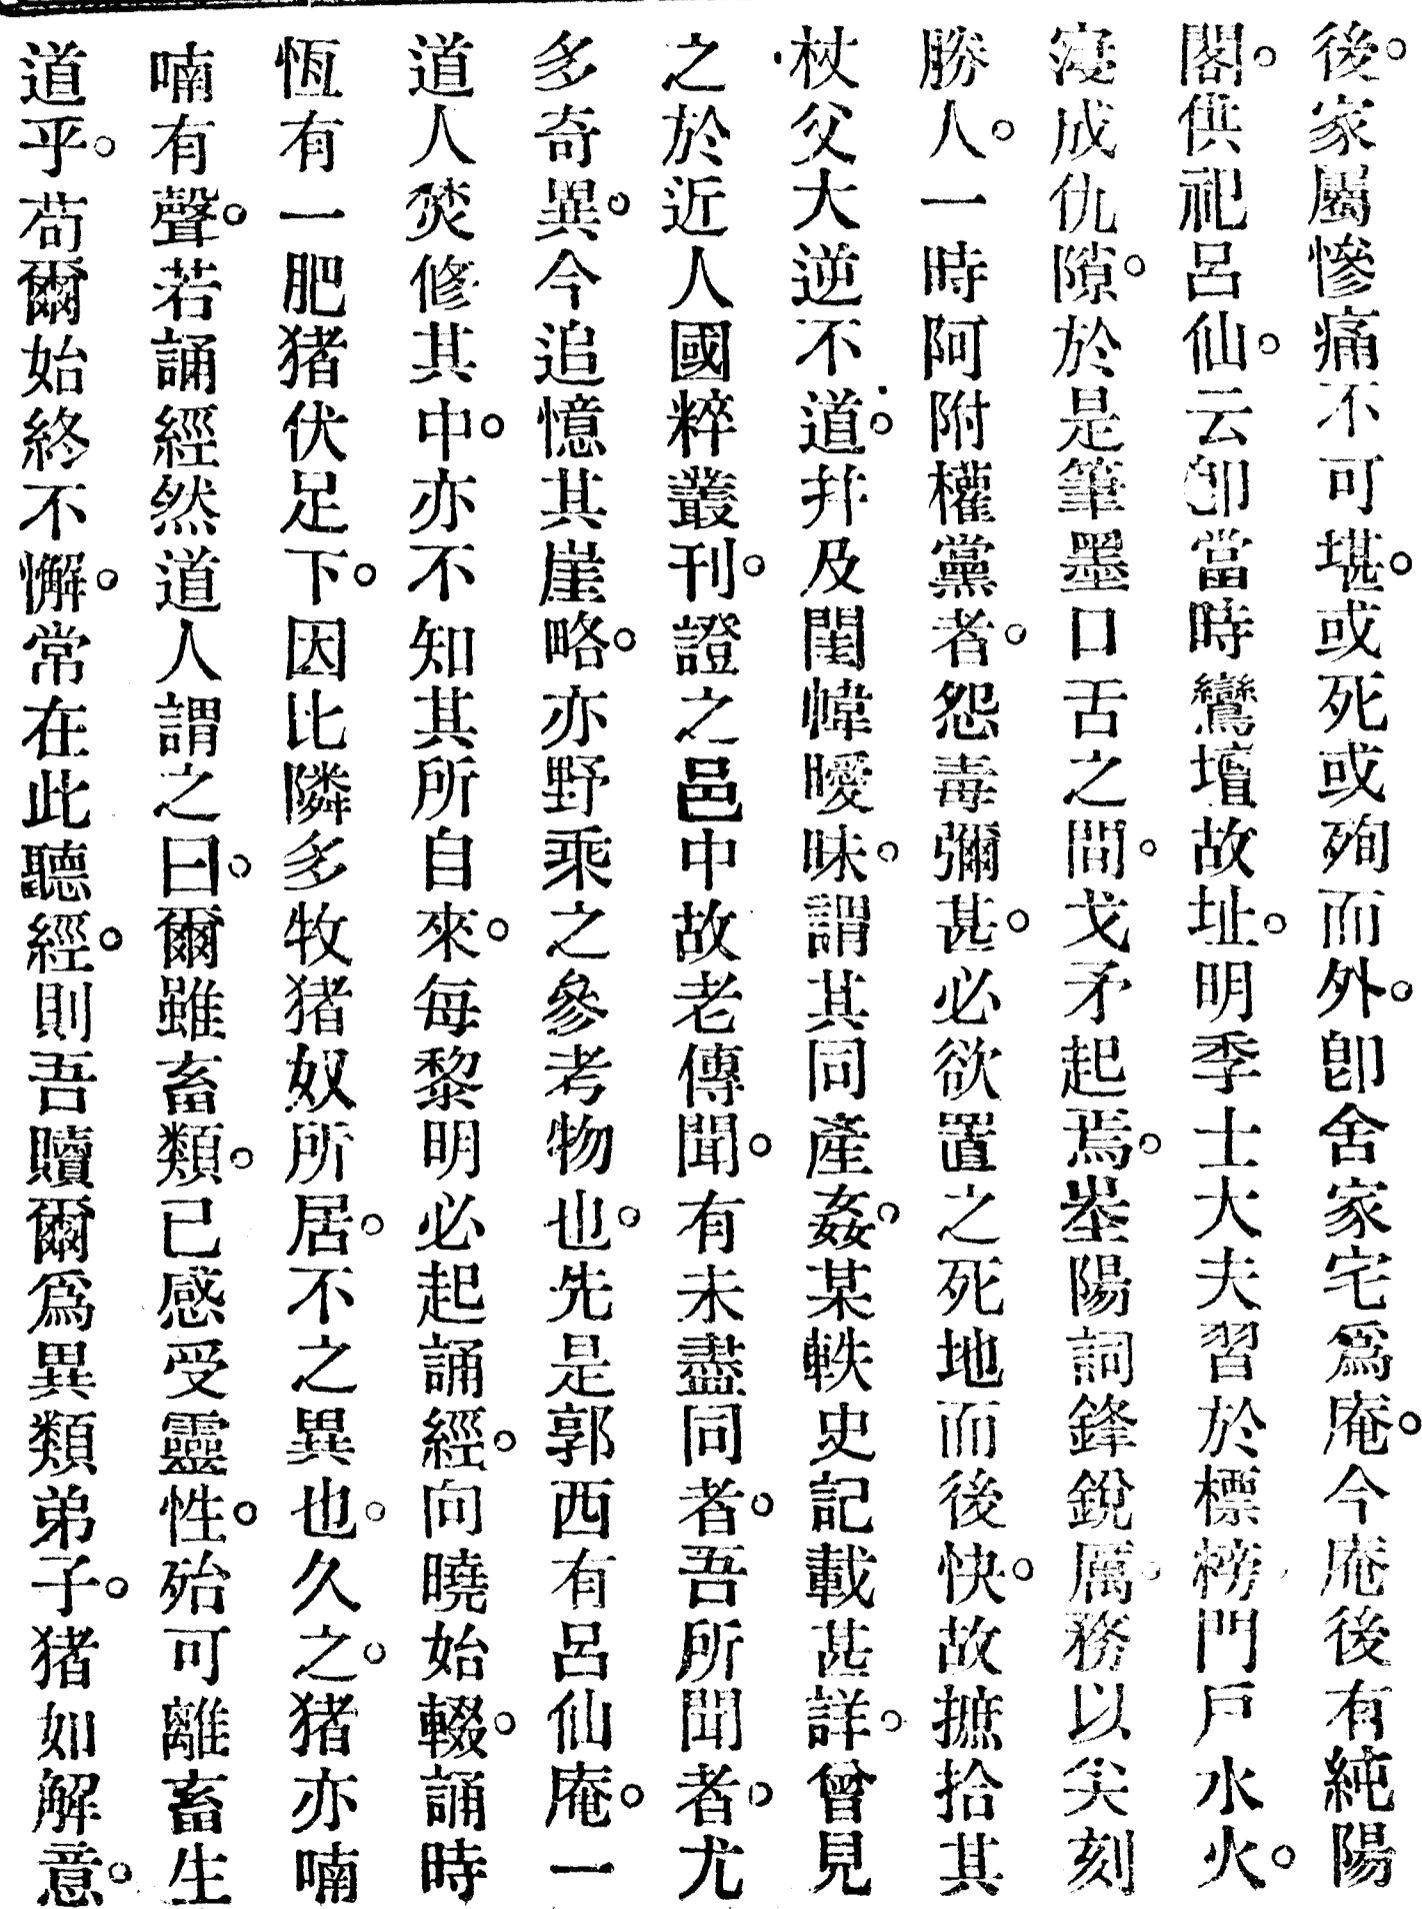 後。家屬慘痛不可堪。或死或殉而外。卽舍家宅爲庵。今庵後有純陽
閣。供祀呂仙。云卽當時鸞壇故址。明季士大夫習於標榜門戶水火。
寖成仇隙。於是筆墨口舌之間。戈矛起焉。峚陽詞鋒銳厲。務以尖刻
勝人。一時阿附權黨者。怨毒彌甚。必欲置之死地而後快。故摭拾其
杖父大逆不道。幷及閨幃曖昧。謂其同產姦。某軼史記載甚詳。曾見
之於近人國粹叢刊。證之邑中故老傳聞。有未盡同者。吾所聞者。尤
多奇異。今追憶其崖略。亦野乘之參考物也。先是郭西有呂仙庵。一
道人焚修其中。亦不知其所自來。每黎明必起誦經。向曉始輟。誦時
恆有一肥猪伏足下。因比隣多牧猪奴所居。不之異也。久之。猪亦喃
喃有聲。若誦經然道人謂之曰。爾雖畜類。已感受靈性。殆可離畜生
道乎。苟爾始終不懈。常在此聽經。則吾贖爾爲異類弟子。猪如解意。